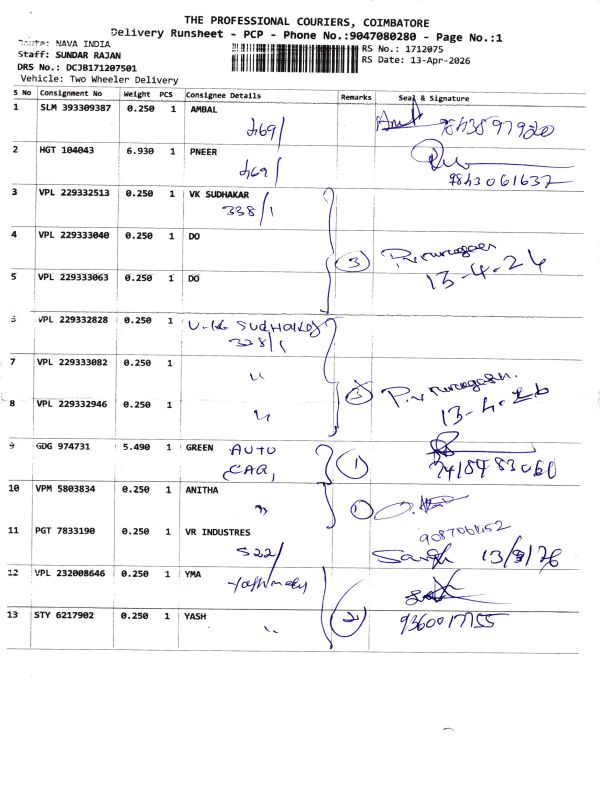 THE PROFESSIONAL COURIERS, COIMBATORE
Delivery Runsheet - PCP - Phone No.:9047080280 - Page No.:1
Route: NAVA INDIA
Staff: SUNDAR RAJAN
DRS No.: DCJB171207501
Vehicle: Two Wheeler Delivery
RS No.: 1712075
RS Date: 13-Apr-2026
S No Consignment No Weight PCS Consignee Details Remarks Seal & Signature
1 SLM 393309387 0.250 1 AMBAL
469/
2 HGT 104043 6.930 1 PNEER
469/
9843061637
3 VPL 229332513 0.250 1 VK SUDHAKAR
338/1
4 VPL 229333040 0.250 1 DO
3
13-4-26
5 VPL 229333063 0.250 1 DO
6 VPL 229332828 0.250 1 V.K SUDHAKAR
338/1
7 VPL 229333082 0.250 1 "
8 VPL 229332946 0.250 1 "
3
P.v Murugesan.
13-4-26
9 GDG 974731 5.490 1 GREEN AUTO
CAR,
1
7418483060
10 VPM 5803834 0.250 1 ANITHA
"
1
11 PGT 7833190 0.250 1 VR INDUSTRES
522/
12 VPL 232008646 0.250 1 YMA
2
13 STY 6217902 0.250 1 YASH
"
9360017755